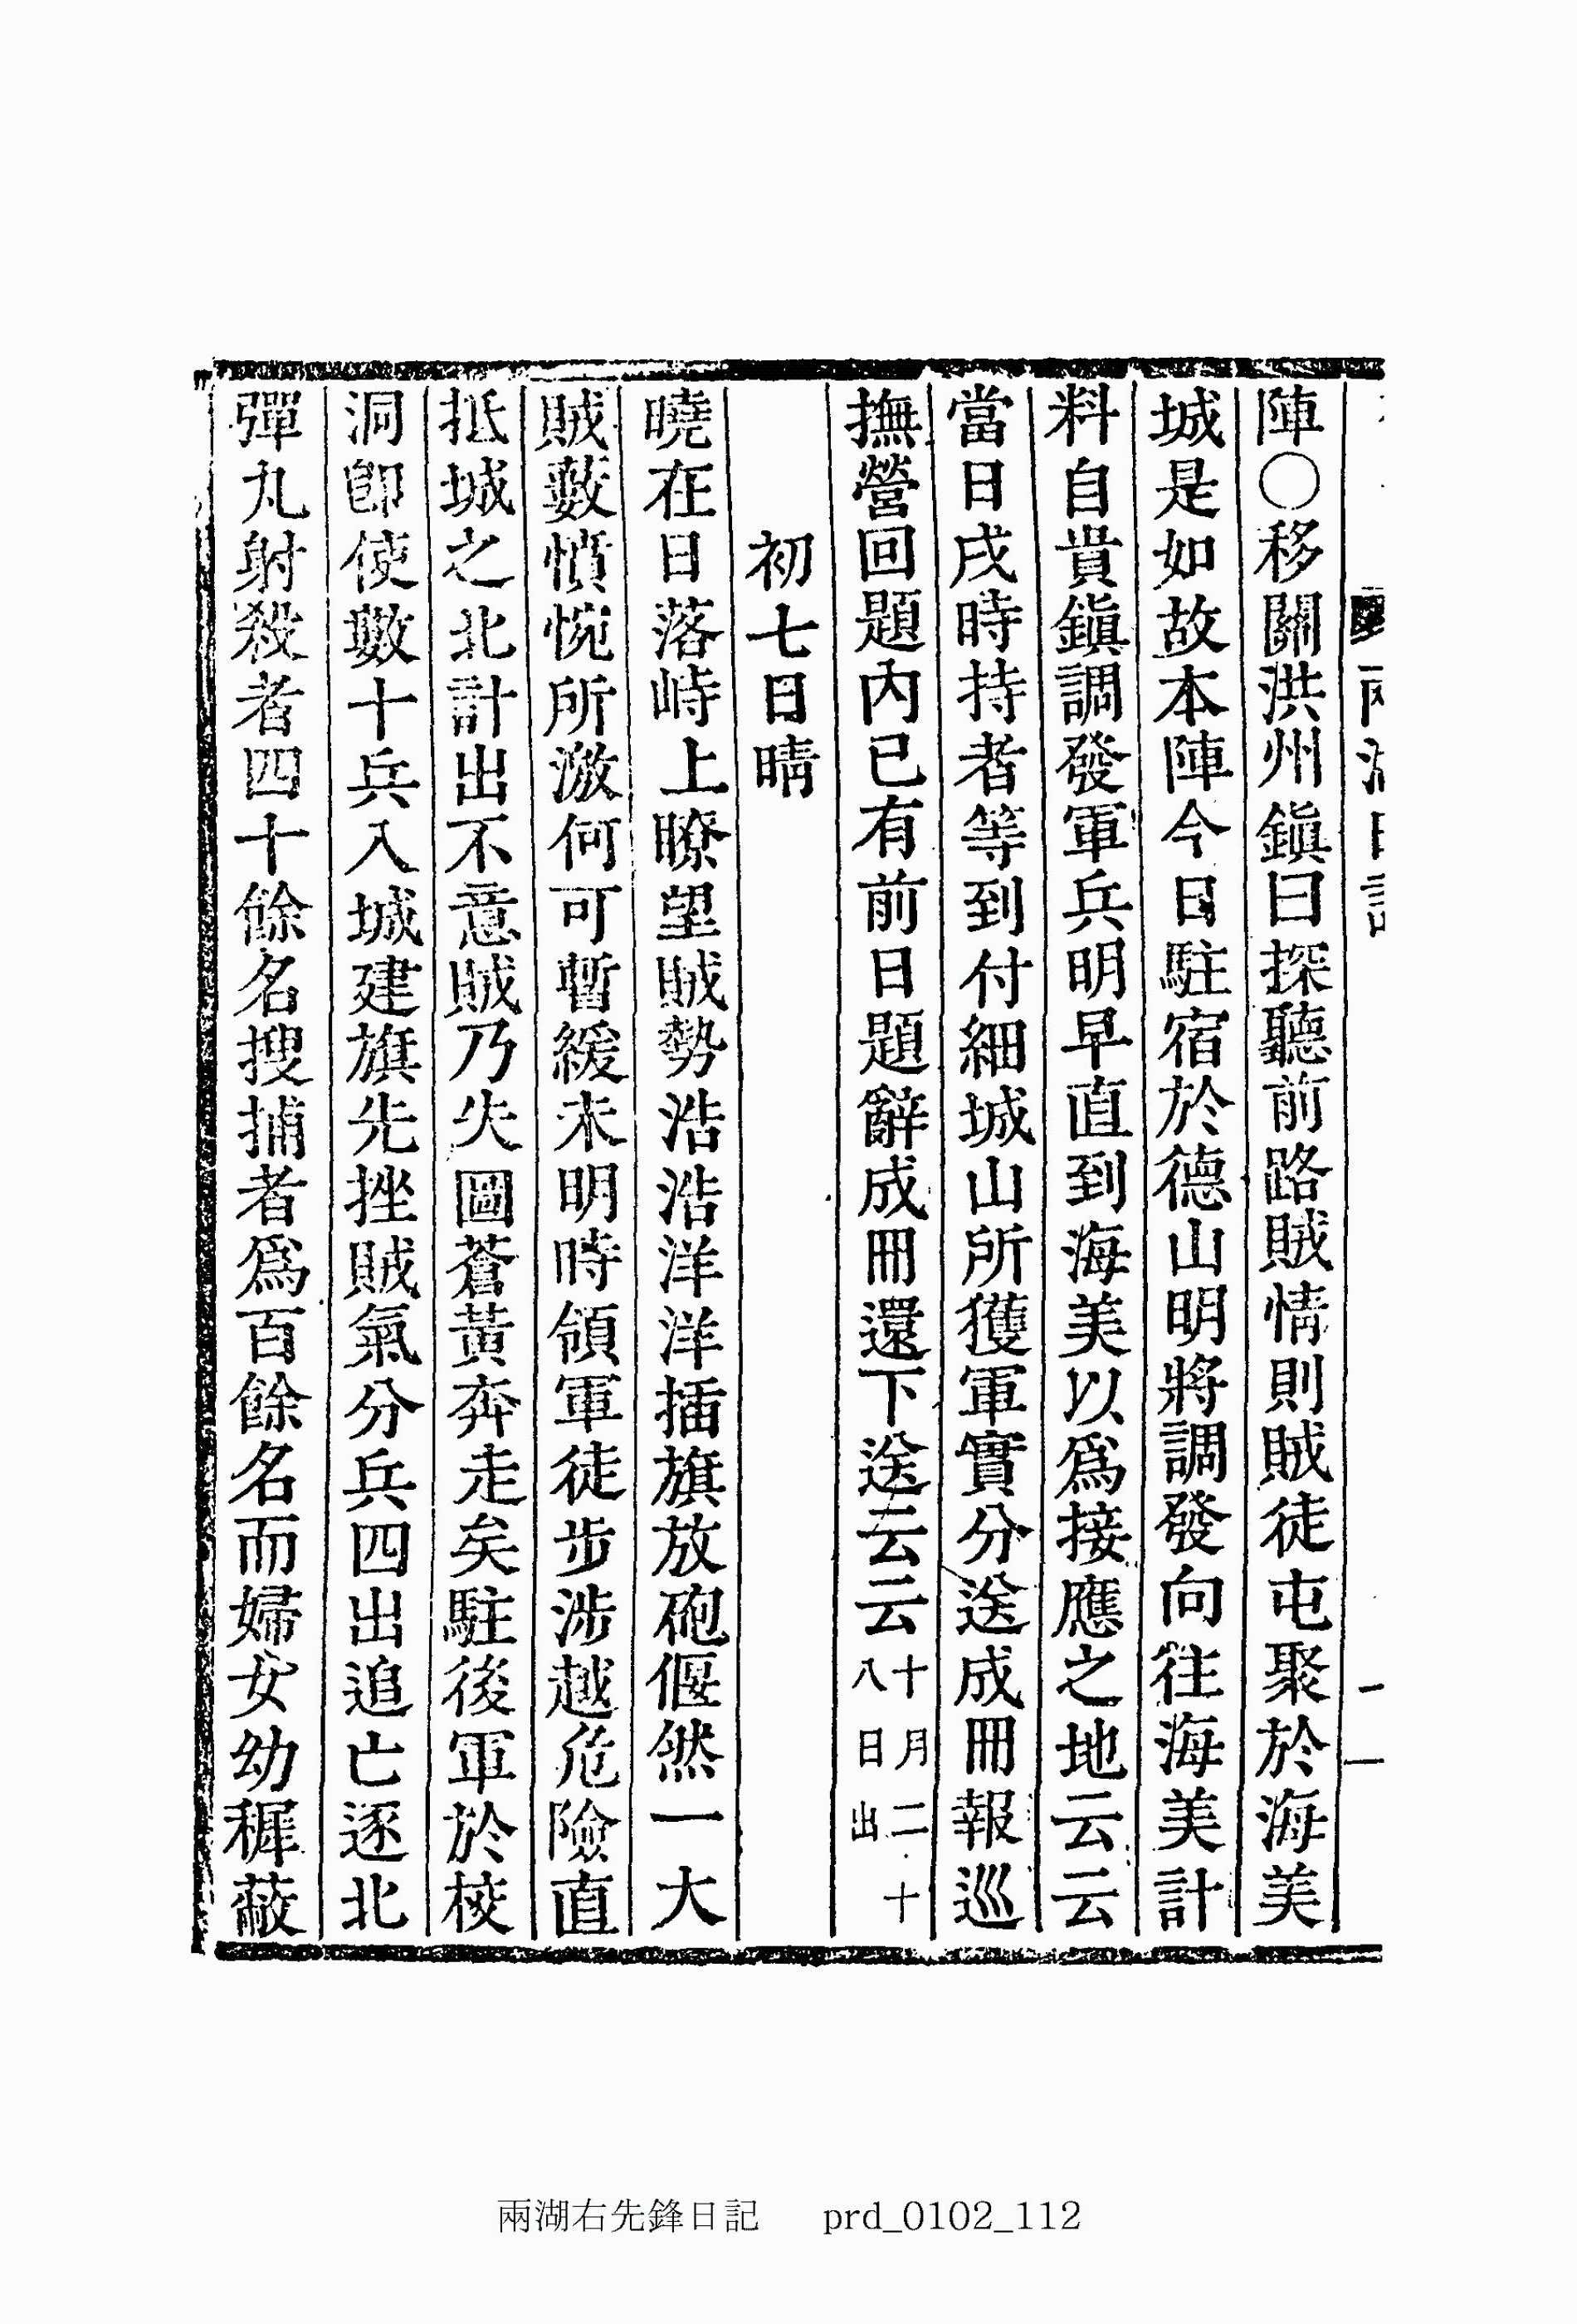 陣〇移關洪州鎭曰探聽前路賊情則賊徒屯聚於海美
城是如故本陣今日駐宿於德山明將調發向往海美計
料自貴鎭調發軍兵明早直到海美以爲接應之地云云
當日戌時持者等到付細城山所獲軍實分送成冊報巡
撫營回題內已有前日題辭成冊還下送云云十月二十八日出
初七日晴
曉在日落峙上瞭望賊勢浩浩洋洋揷旗放砲偃然一大
賊藪憤惋所激何可暫緩未明時領軍徒步涉越危險直
抵城之北計出不意賊乃失圖蒼黃奔走矣駐後軍於校
洞卽使數十兵入城建旗先挫賊氣分兵四出追亡逐北
彈丸射殺者四十餘名搜捕者爲百餘名而婦女幼穉蔽
兩湖右先鋒日記 prd_0102_112